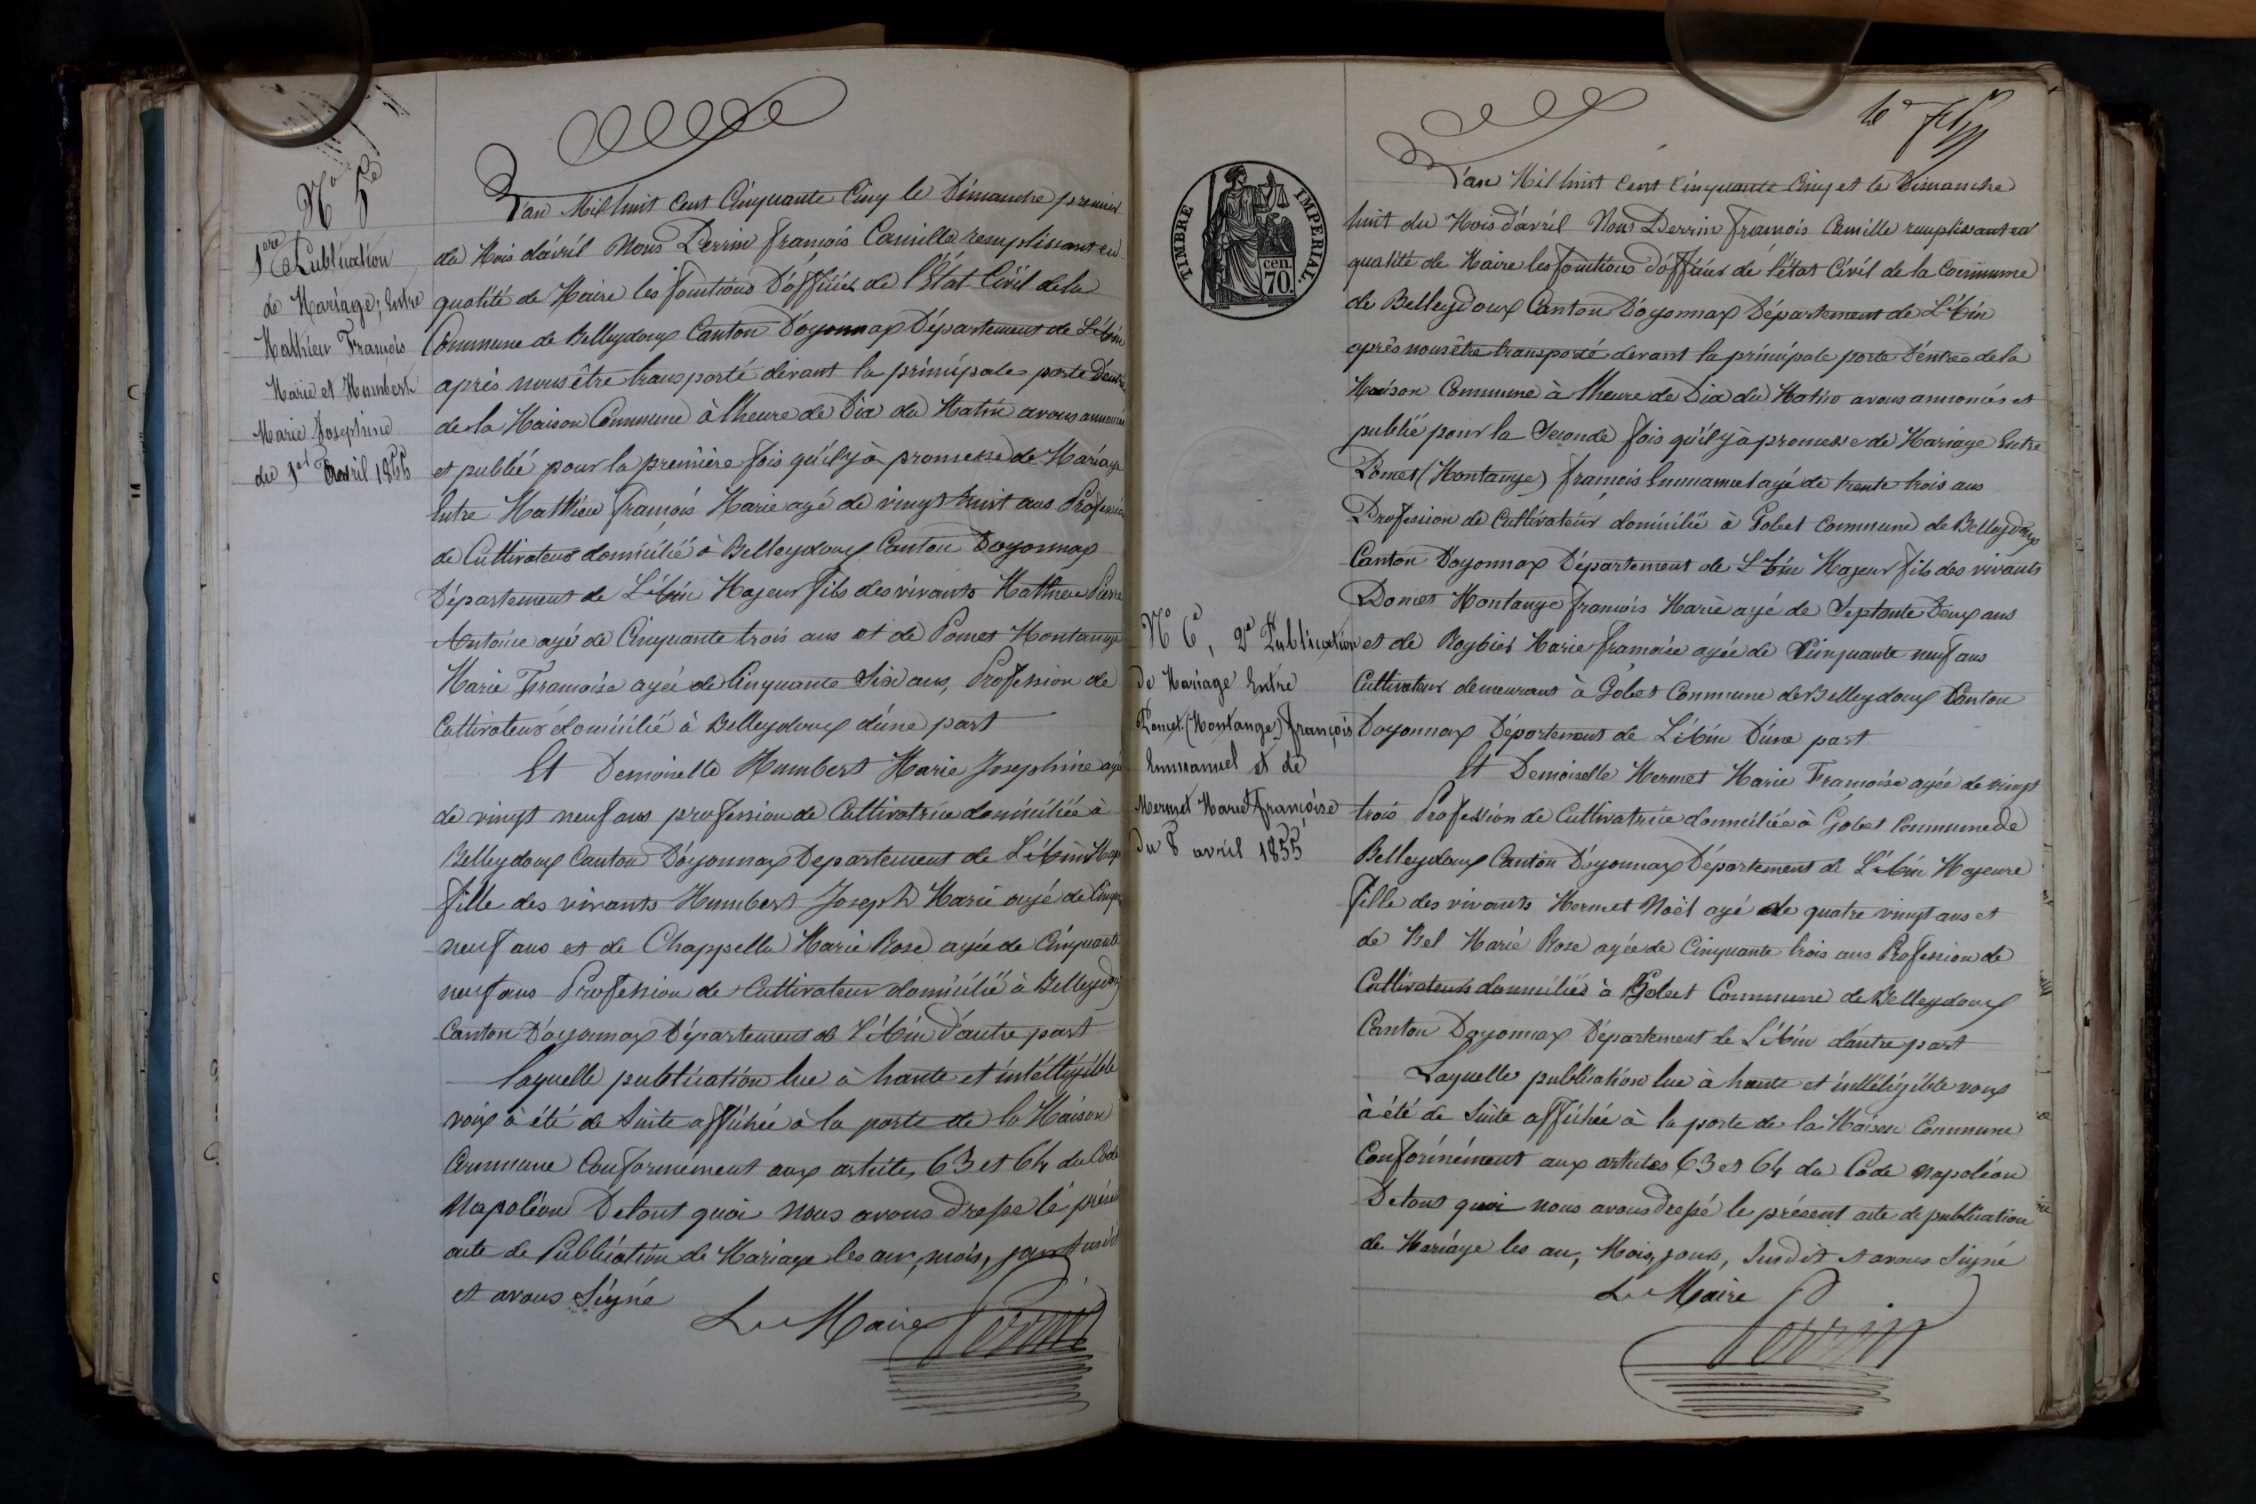 Nº 5e
1ere Publication
de Mariage, Entre
Mathieu François
Marie et Humbert
Marie Josephine
du 1er Avril 1855
L'an Mil huit Cent Cinquante Cinq le Dimanche premier
du Mois d'avril Nous Perrin françois Camille remplissant en
qualité de Maire les fonctions D'officier de l'État Civil de la
Commune de Belleydoux Canton D'oyonnax Département de L'Ain
après nous être transporté devant la principale porte D'entrée
de la Maison Commune à l'heure de Dix du Matin avons annoncé
et publié pour la première fois qu'il y à promesse de Mariage
Entre Mathieu françois Marie agé de vingt huit ans Profession
de Cultivateur domicilié à Belleydoux Canton Doyonnax
Département de L'Ain Majeur fils des vivants Mathieu Pierre
Antoine agé de Cinquante trois ans et de Pomet Montange
Marie Francoise agée de Cinquante Six ans, Profession de
Cultivateur domicilié à Belleydoux d'une part
Et Demoiselle Humbert Marie Josephine agée
de vingt neuf ans profession de Cultivatrice domiciliée à
Belleydoux Canton D'oyonnax Departement de L'Ain Maj
fille des vivants Humbert Joseph Marie agé de Cinqte
neuf ans et de Chappelle Marie Rose agée de Cinquante
neuf ans Profession de Cultivateur domicilié à Belleydoux
Canton D'oyonnax Département de L'Ain d'autre part
Laquelle publication lue à haute et intélligible
voix à été de Suite affichée à la porte de la Maison
Commune Conformement aux articles 63 et 64 du Code
Napoléon De tout quoi Nous avons dressé le présent
acte de Publication de Mariage les an, mois, jour susdit
et avons Signé
Le Maire Perrin
TIMBRE IMPERIAL
70 cen.
L'an Mil huit Cent Cinquante Cinq et le Dimanche
huit du Mois d'avril Nous Perrin françois Camille remplissant en
qualité de Maire les fonctions d'officier de l'état Civil de la Commune
de Belleydoux Canton D'oyonnax Département de L'Ain
après nous être transporté devant la principale porte D'entrée de la
Maison Commune à l'heure de Dix du Matin avons annoncés et
publié pour la Seconde fois qu'il y à promesse de Mariage Entre
Pomet (Montange) françois Emmanuel agé de trente trois ans
Profession de Cultivateur domicilié à Gobet Commune de Belleydoux
Canton D'oyonnax Département de L'Ain Majeur fils des vivants
Pomet Montange francois Marie agé de Septante Deux ans
Nº 6e, 2e Publication
de Mariage Entre
Pomet (Montange) françois
Emmanuel et de
Mermet Marie françoise
du 8 avril 1855
et de Roybier Marie françoise agée de Cinquante neuf ans
Cultivateur demeurans à Gobet Commune de Belleydoux Canton
Doyonnax Département de L'Ain D'une part
Et Demoiselle Mermet Marie Françoise agée de vingt
trois Profession de Cultivatrice domiciliée à Gobet Commune de
Belleydoux Canton D'oyonnax Département de L'Ain Majeure
fille des vivants Mermet Noël agé de quatre vingt ans et
de Bel Marie Rose agée de Cinquante trois ans Profession de
Cultivateurs domiciliés à Gobet Commune de Belleydoux
Canton Doyonnax Département de L'Ain d'autre part
Laquelle publication lue à haute et intéligible voix
à été de Suite affichée à la porte de la Maison Commune
Conformément aux articles 63 et 64 du Code Napoléon
De tout quoi nous avons dressé le présent acte de publication
de Mariage les an, Mois, jour, Susdit et avons Signé
Le Maire
Perrin